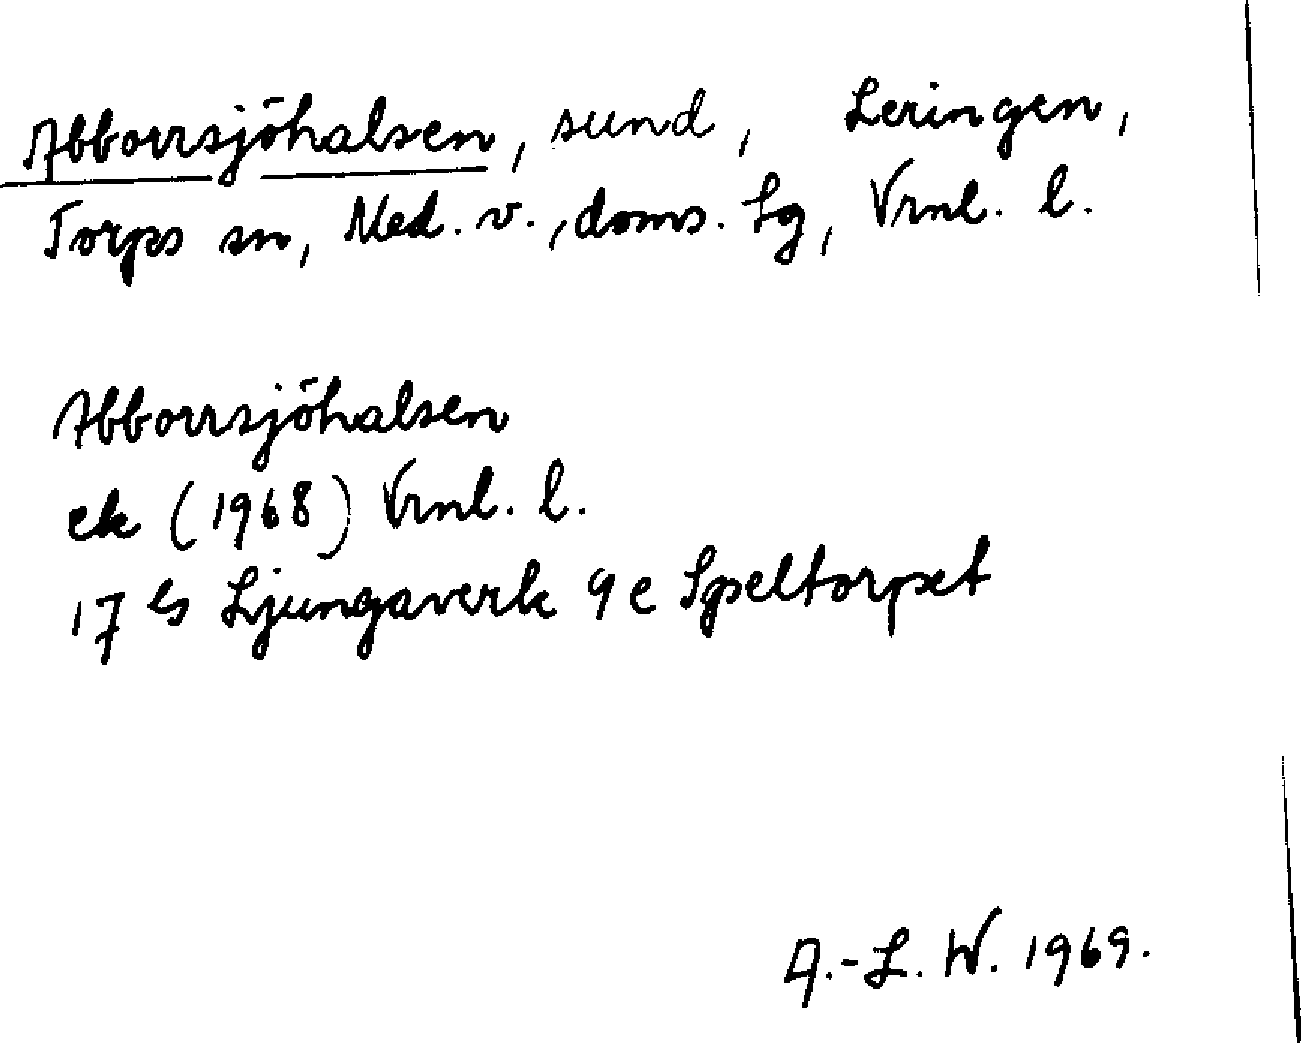 Abborrsjöhalsen, sund, Leringen,
Torps sn, Med. v., doms. Sg, Vrnl. l.
Abborrsjöhalsen
ek (1968) Vrnl. l.
17 G Ljungaverk 9 e Speltorpet
A.-L. W. 1969.